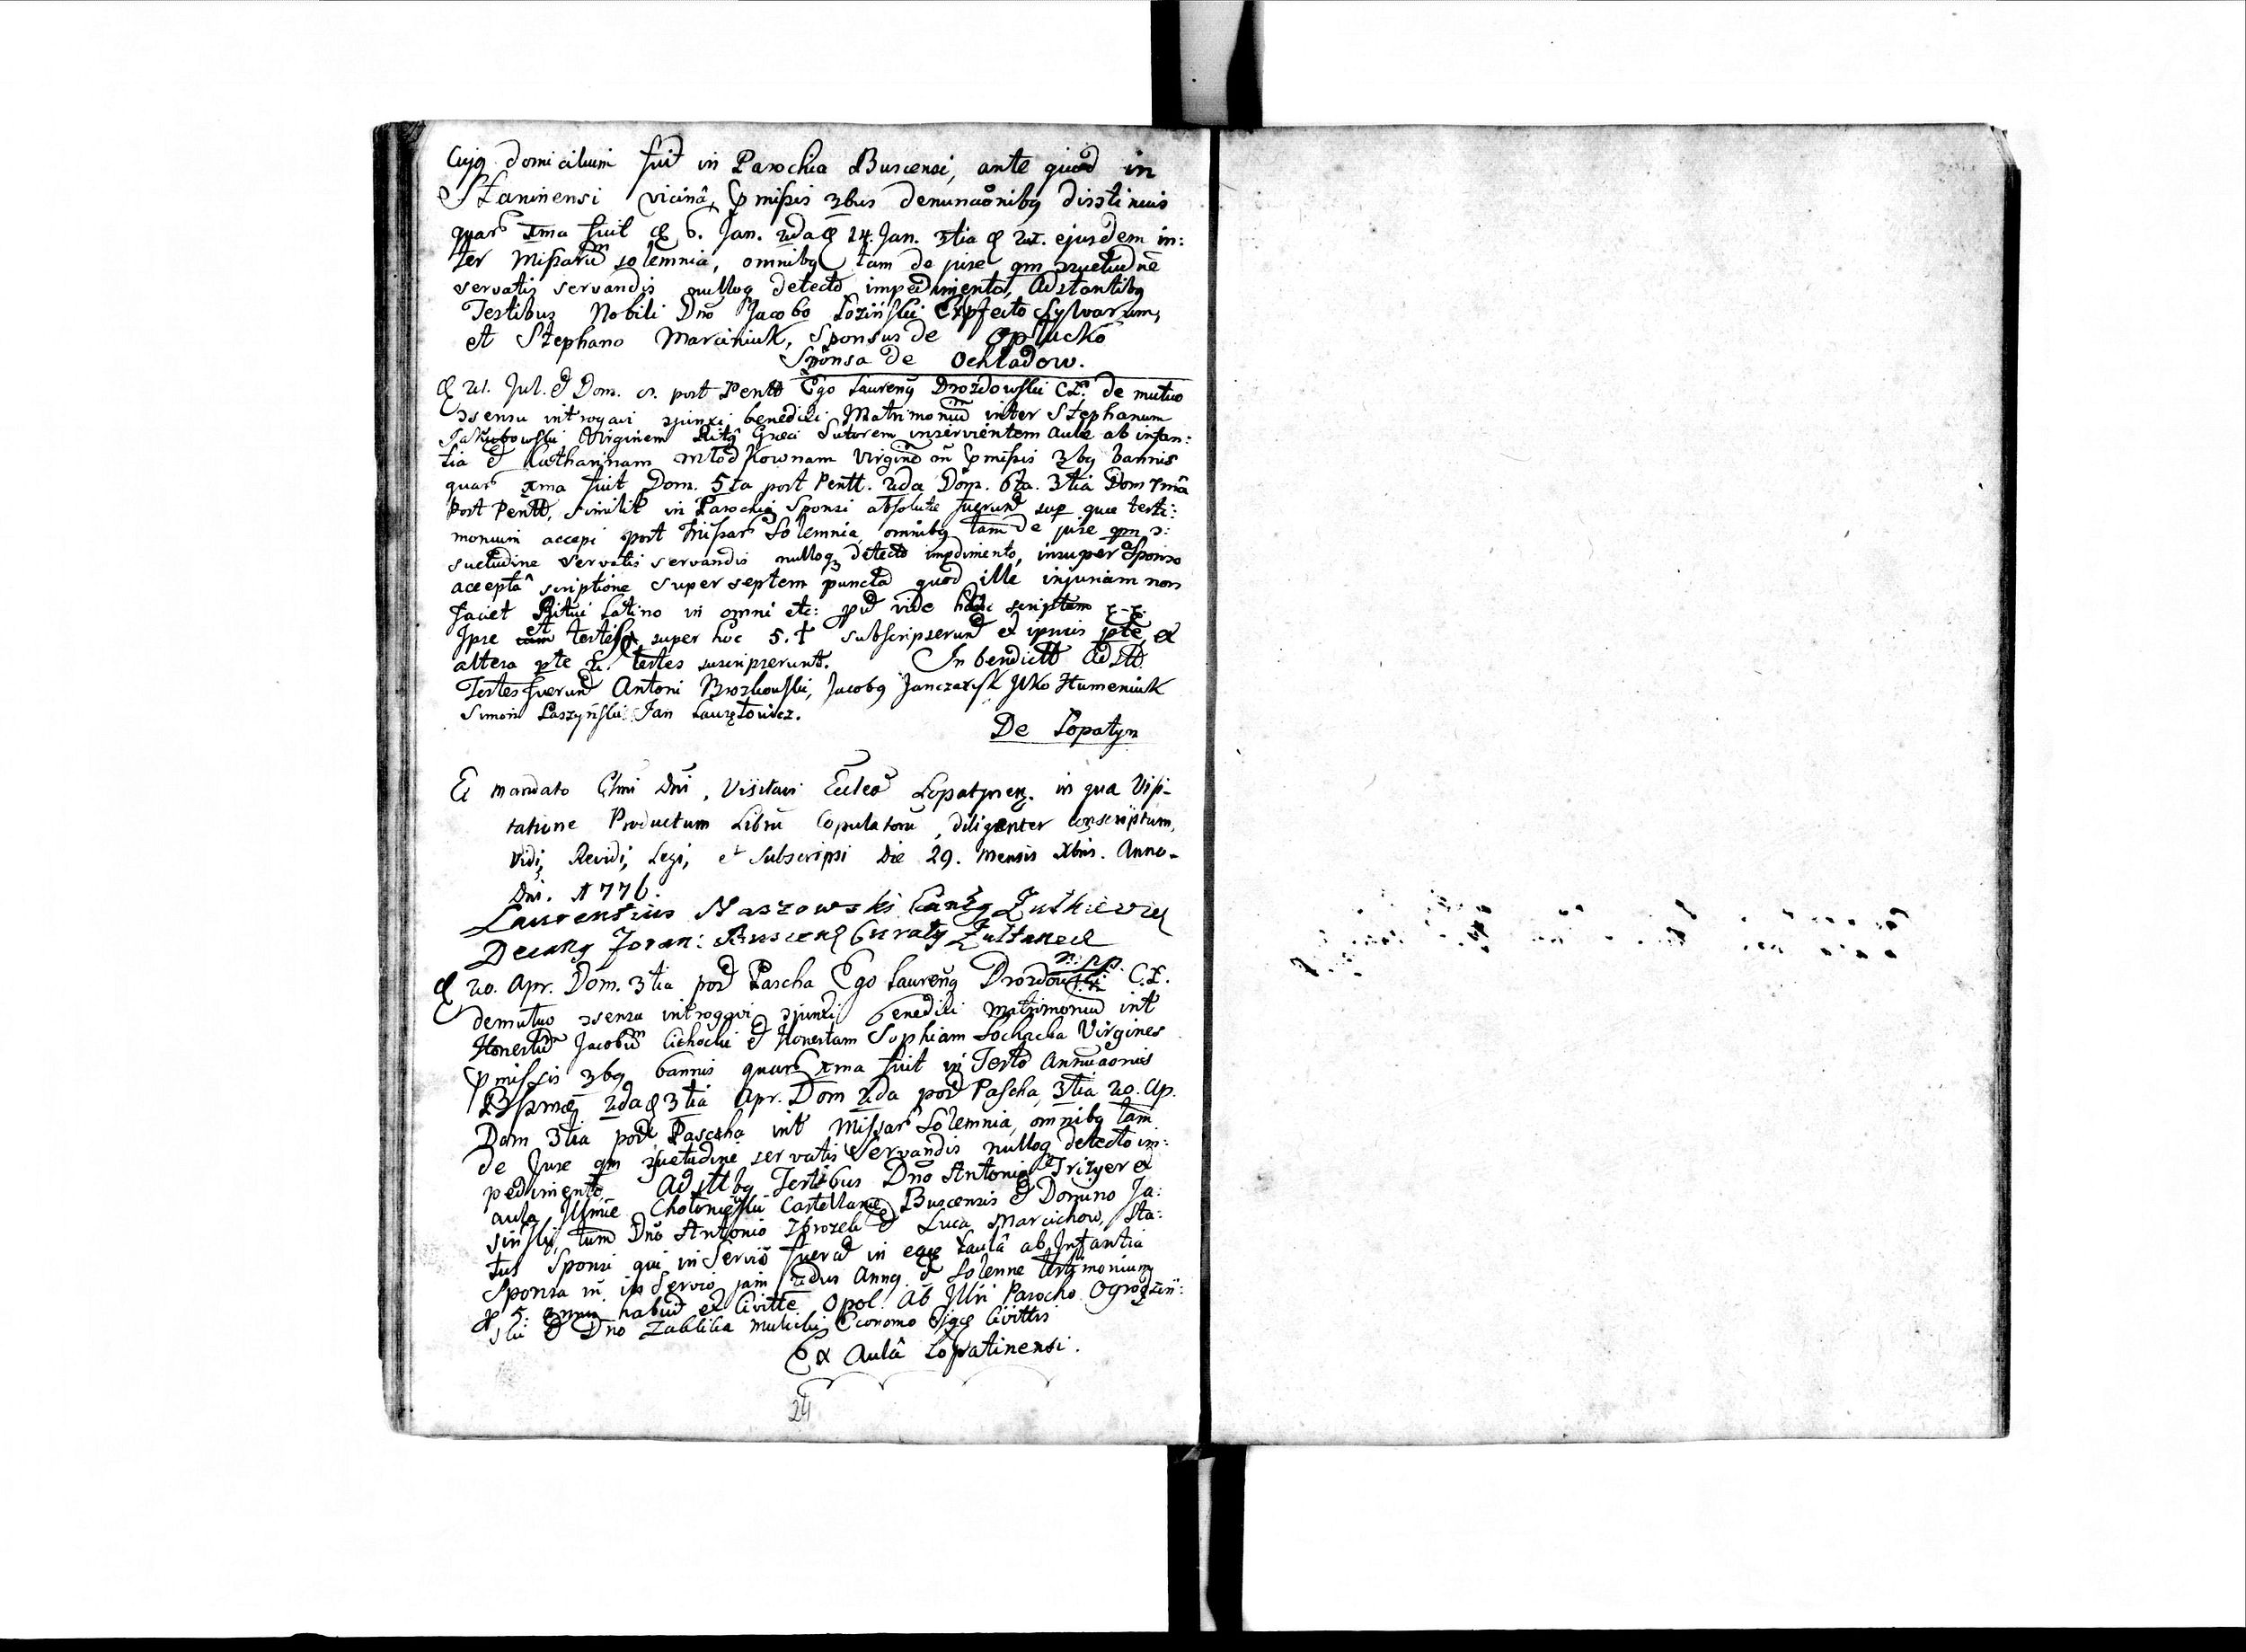 Cujg domicilium fuit in Parochia Buscensi, ante quod in
Staninensi vicinâ, pmissis 3bus denunaonibg distincis
quar xma fuit 6. Jan. 2da 14. Jan. 3tia 21. ejusdem in:
ter Missarum solemnia, omnibg tam de jure qm suetudne
servatis servandis nullog detecto impedimento, Adstantibg
Testibus Nobili Dno Jacobo Łoziński Sylvarum,
et Stephano Marciniuk, Sponsus de Opłucko
Sponsa de Ochladow.
21. Jul. Dom. post Pentt Ego Laureng Drozdowski de mutuo
ssensu introgavi sjunxi benedixi Matrimonium inter Stephanum
Jakubowski Virginem Ritg Græci Sutorem inservientem aulæ ab infan:
tia et Katharinam Młodkownam Virginem pmissis 3bg bannis
quar xma fuit Dom. 5ta post Pentt. 2da Dom. 6ta. 3tia Dom 7mâ
Post Pentt, similit in Parochia Sponsi absolute fuerunt sup quæ testi:
monium accepi post Missar Solemnia, omnibg tam de jure qm s:
suetudine servatis servandis nullog detecto impdimento, insuper a Sponso
acceptâ scriptione super septem puncta quod ille injuriam non
faciet Ritui Latino in omni etc: vide hanc scriptam
Ipse et testes super hoc 5. † subscripserunt ex ipsius pte, ex
altera pte testes suscripserunt. In bendictt Adstt
Testes fuerunt Antoni Brozkowski, Jacobg Janczarysk Ilko Humeniuk
Simon Laszyński Jan
De Łopatyn
Ex mandato Dni, Visitavi Lopatynen. in qua Visi-
tatione Productum Librum Copulatorum, diligenter conscriptum,
Vidi, Revidi, Legi, et Subscripsi Die 29. Mensis Xbris. Anno-
Dni. 1776.
Laurentius Naszowski
Decang Foran: Buscens Curatg
mpp.
20. Apr. Dom. 3tia post Pascha Ego Laureng Drozdowski
demutuo ssensu introggavi sjunxi benedixi matrimonium int
Honestum Jacobum Cichocki et Honestam Sophiam Lochacka Virgines
pmissis 3bg bannis quar xma fuit in Festo Annuaonis
2da 3tia Apr. Dom 2da post Pascha, 3tia 20. Ap.
Dom 3tia post Pascha int Missar Solemnia, omnibg tam
de Jure qm suetudine servatis Servandis nullog detecto im:
pedimento, Adsttbg Testibus Dno Antonio ex
aula Illmæ Castellanæ Buscensis et Domino Ja:
sinski, tum Dno Antonio et Luca Marcichow, Sta:
tus Sponsi qui in Servio fuerat in aulâ ab Infantia
Sponsa in Servio jam 2dus Anng et Solenne testimonium
5. annu habuit ex Civitte Opol. Ab Illri Parocho
ski et Dno Economo Civittis
Ex Aulâ Lopatinensi.
24